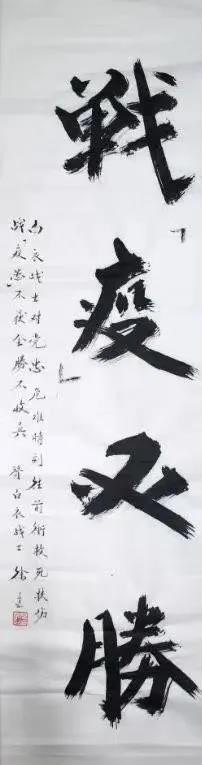 戦「疫」又勝
白衣战士对党忠危难時刻往前衝救死扶伤
战「疫」不获全勝不收兵 赞白衣战士 徐